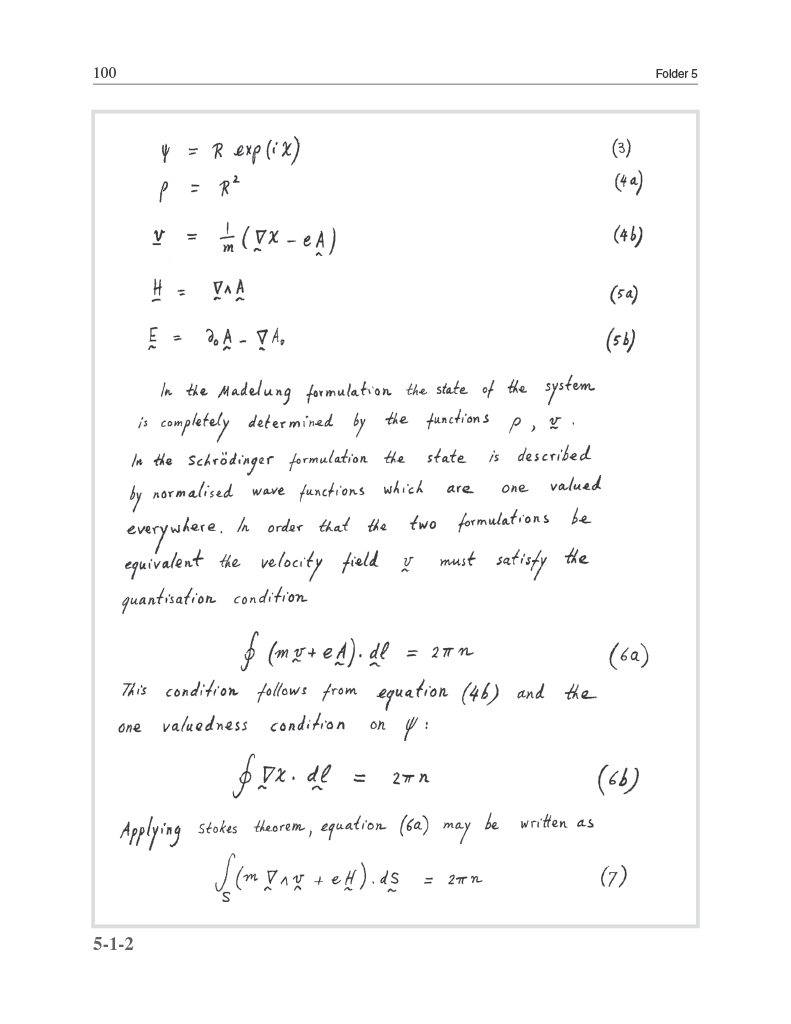 100 Folder 5
ψ = R exp(iχ) (3)
ρ = R² (4a)
v = 1/m (∇χ - eA) (4b)
H = ∇∧A (5a)
E = ∂₀A - ∇A₀ (5b)
In the Madelung formulation the state of the system
is completely determined by the functions ρ, v.
In the Schrödinger formulation the state is described
by normalised wave functions which are one valued
everywhere. In order that the two formulations be
equivalent the velocity field v must satisfy the
quantisation condition
∮ (mv + eA). dl = 2πn (6a)
This condition follows from equation (4b) and the
one valuedness condition on ψ :
∮ ∇χ. dl = 2πn (6b)
Applying Stokes theorem, equation (6a) may be written as
∫S (m ∇∧v + eH). dS = 2πn (7)
5-1-2